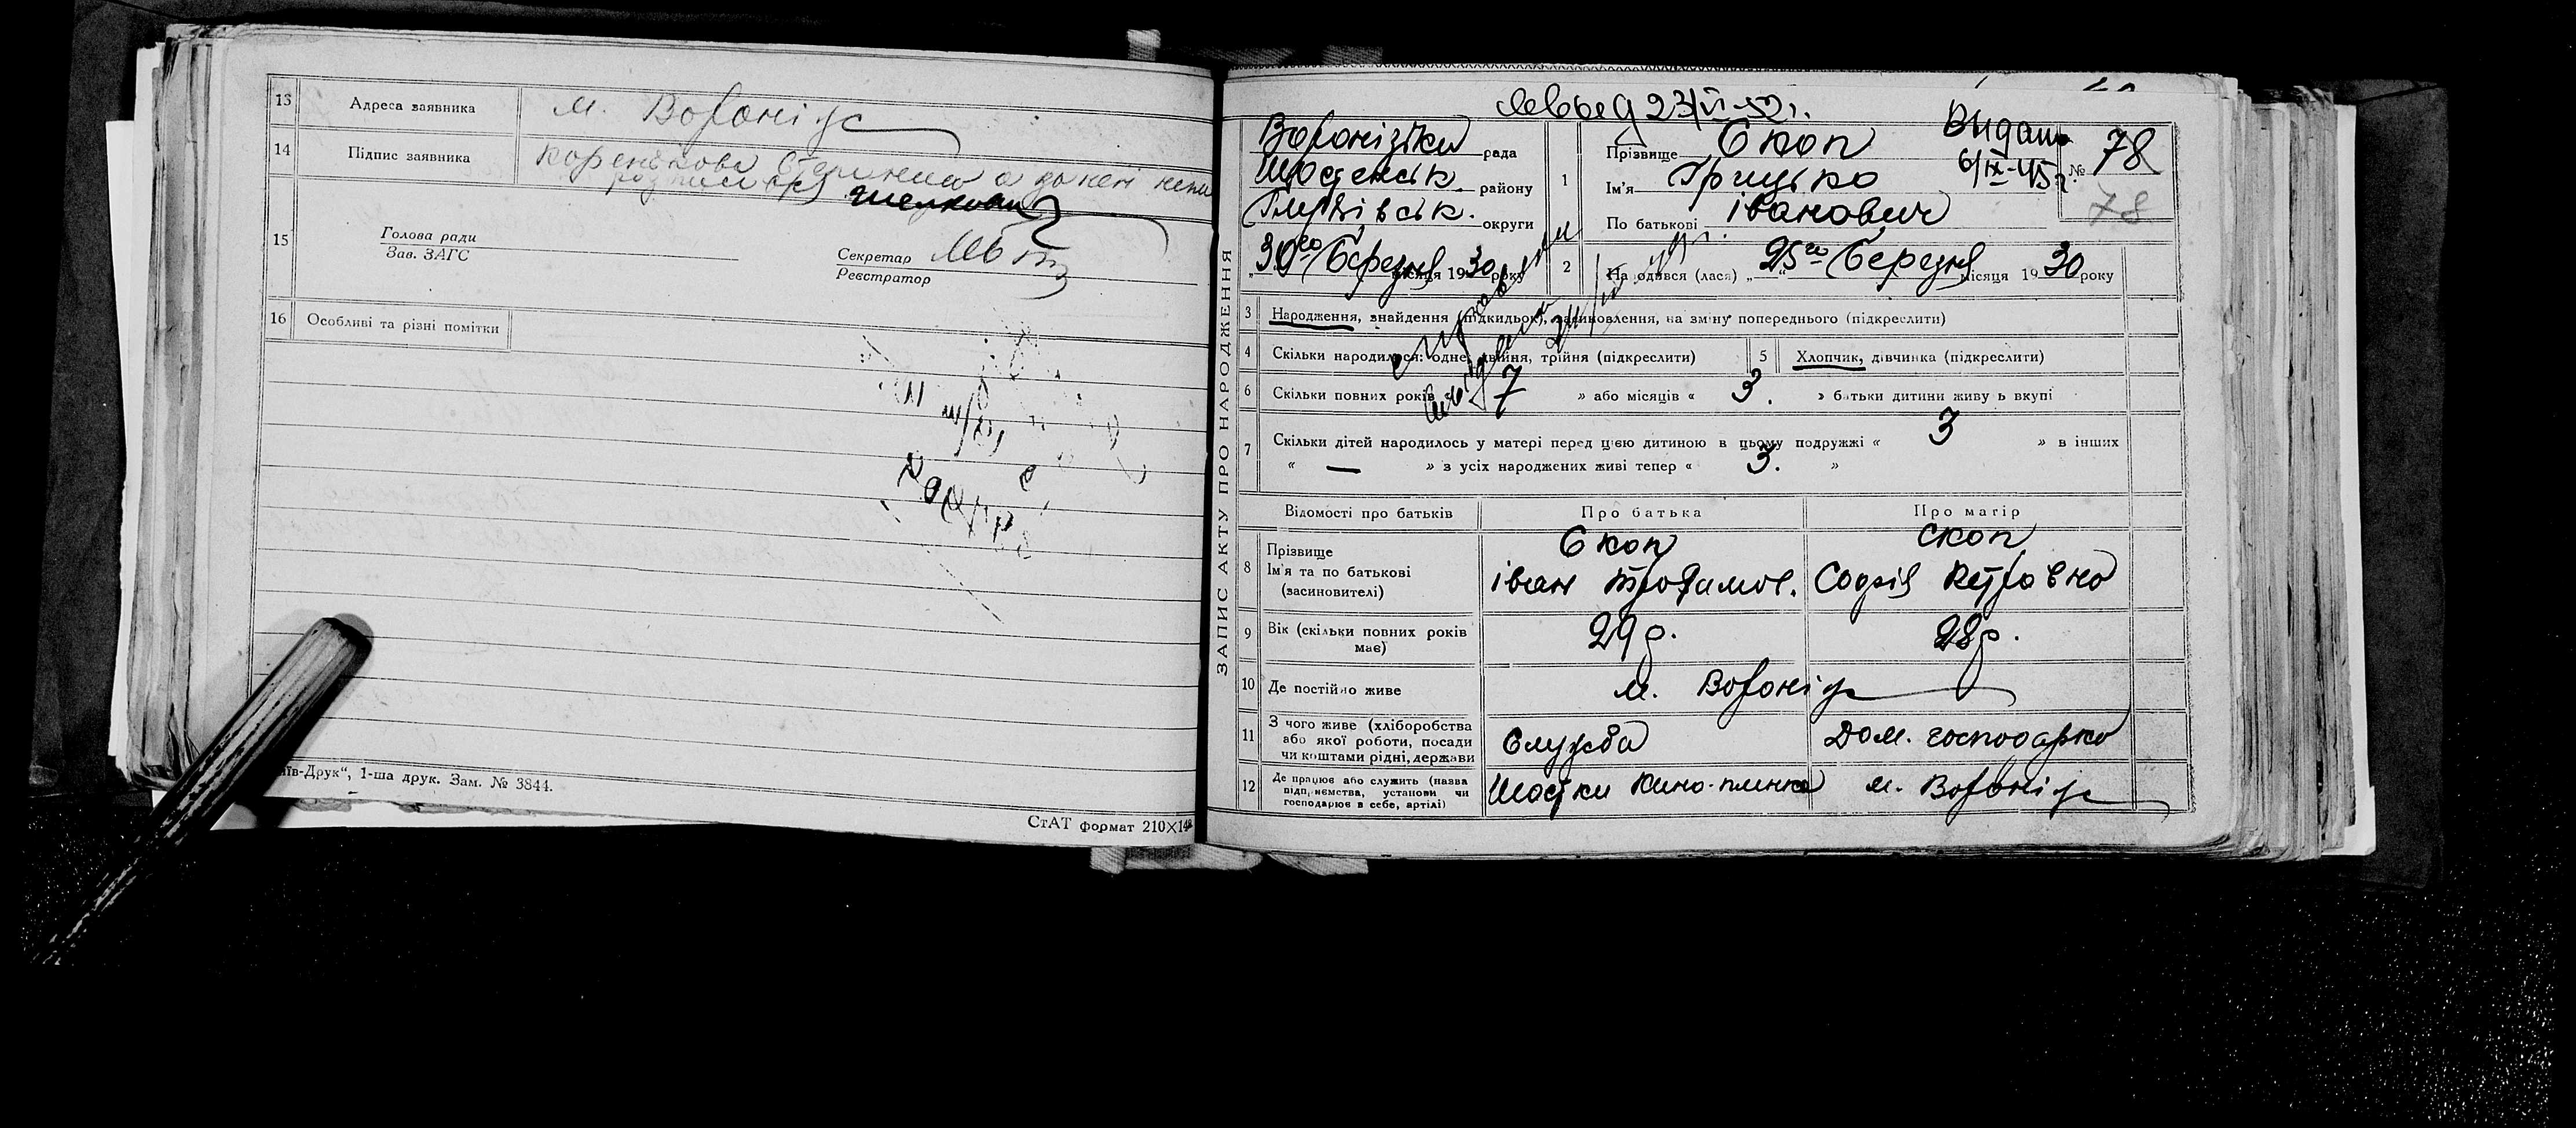 13 Адреса заявника м. Вороніж
14 Підпис заявника
15 Голова ради
Зав. ЗАГС
Секретар
Реєстратор
16 Особливі та різні помітки
иїв-Друк“, 1-ша друк. Зам. № 3844.
СтАТ формат 210×148
ЗАПИС АКТУ ПРО НАРОДЖЕННЯ
23/VI-52г.
Видано
6/IX-45г
№ 78
78
рада
Шостенськ району
Глухівськ. округи
„30го Березня місяця 1930 року
1 Прізвище Скоп
Ім'я Грицько
По батькові Іванович
2 Народився (лася) „25го Березня місяця 1930 року
3 Народження, знайдення (підкидьок), засиновлення, на зміну попереднього (підкреслити)
4 Скільки народилося: одне, двійня, трійня (підкреслити)
5 Хлопчик, дівчинка (підкреслити)
6 Скільки повних років 7 » або місяців « 3. » батьки дитини живуть вкупі
7 Скільки дітей народилось у матері перед цією дитиною в цьому подружжі « 3 » в інших
« — » з усіх народжених живі тепер « 3. »
Відомості про батьків Про батька Про матір
8 Прізвище Скоп Скоп
Ім'я та по батькові Іван Трофимов. Софія Петровна
(засиновителі)
9 Вік (скільки повних років 29 р. 28 р.
має)
10 Де постійно живе м. Вороніж
11 З чого живе (хліборобства
або якої роботи, посади Служба Дом. господарка
чи коштами рідні, держави
12 Де працює або служить (назва
підприємства, установи чи Шостки Кино-плинка м. Вороніж
господарює в себе, артілі)